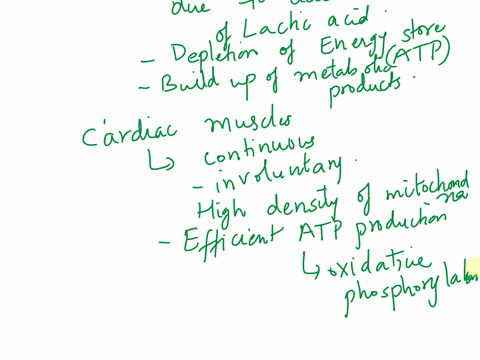 due to
of Lactic acid.
- Depletion of Energy store (ATP)
- Build up of metabolic products.
Cardiac muscles
↳ continuous
- involuntary.
High density of mitochondria
- Efficient ATP production
↳ oxidative
phosphorylation